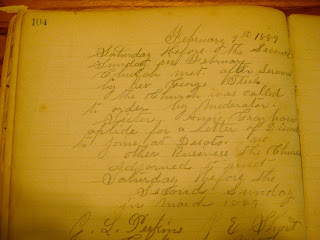 104
February 9st 1889
Saturday Before the Second
Sunday in February
Church met after Sermon
by Rev George
The Church was called
to order by Moderator.
Sister Annie
aplide for a letter of
to join at Desoto. no
other Business the Church
adjorned to meet
Saturday before the
Second Sunday
in March 1889
C. L. Perkins